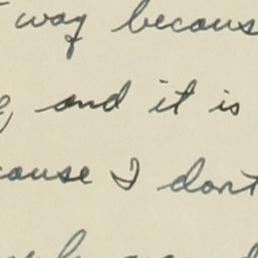 way becaus
and it is
cause I dont